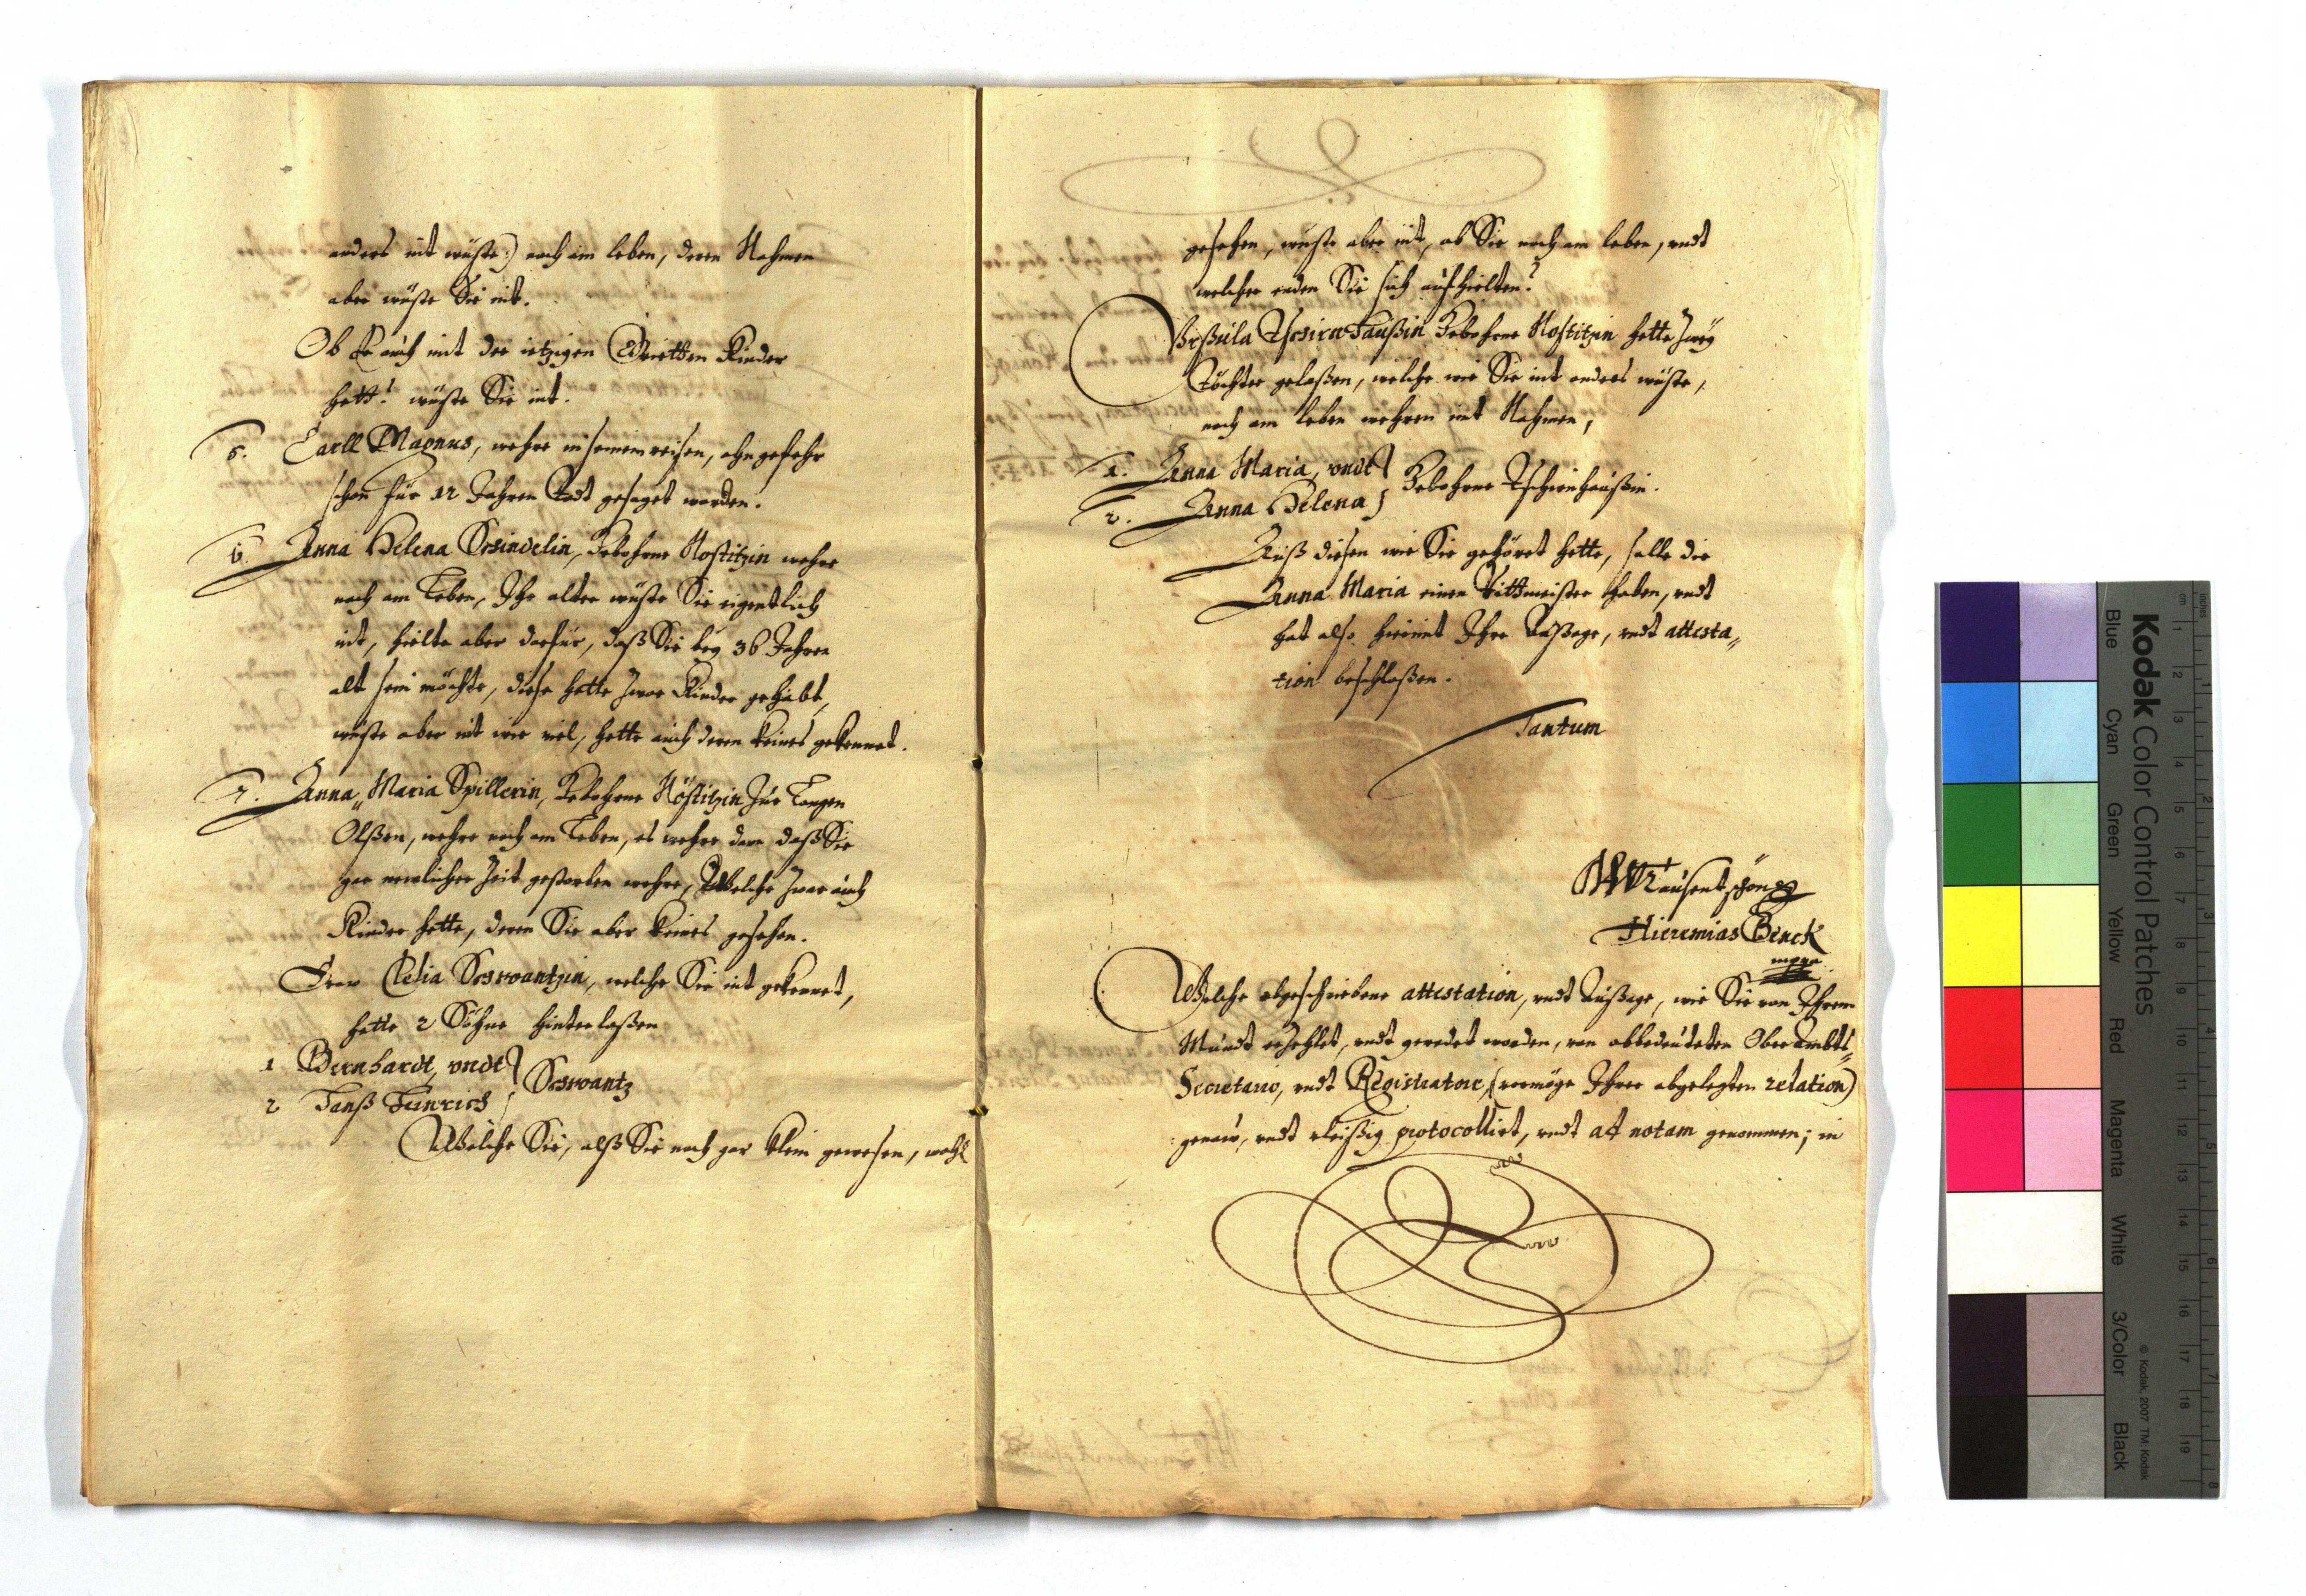 anders nit wüste:) noch im leben, deren Nahmen
aber wüste Sie nit.
Ob Er auch mit der ietzigen Kinder
hett? wüste Sie nit.
5. Carll Magnus, wehre in seinem reisen, ohngefehr
schon für 12 Jahren Todt gesaget worden.
6. Anna Helena Schindelin, Gebohrne Nostitzin wehre
noch am Leben, Ihr alter wüste Sie eigentlich
nit, hielte aber darfür, daß Sie bey 36 Jahren
alt sein möchte, diese hette zwar Kinder gehabt,
wüste aber nit wie viel, hette auch deren keines gekennet.
7. Anna Maria Spillerin, Gebohrne Nostitzin Zur Langen
Olßen, wehre noch am Leben, es wehre dann daß Sie
gar newlicher Zeit gestorben wehre, Welche zwar auch
Kinder hette, deren Sie aber keines gesehen.
Fraw Clelia Schwantzin, welche Sie nit gekennet,
hette 2 Söhne hinterlaßen
1 Bernhardt, vndt
2 Hanß Heinrich } Schwantz
Welche Sie, alß Sie noch gar klein gewesen, wohl
gesehen, wüste aber nit, ob Sie noch am leben, vndt
welcher enden Sie sich aufhielten?
Vrßula Tschirnhaußin Gebohrne Nostitzin hette Zwey
Töchter gelaßen, welche wie Sie nit anders wüste,
noch am leben wehren mit Nahmen,
1. Anna Maria, vndt
2. Anna Helena } Gebohrne Tschirnhaußin.
Auß diesen wie Sie gehöret hette, solle die
Anna Maria einen Rittmeister haben, vndt
hat also hiermit Ihre Außage, vndt attesta„
tion beschloßen.
Tantum
Tausentschön
Hieremias Benck
mppa
Welche abgeschriebene attestation, vndt Außage, wie Sie von Ihrem
Mundt erzehlet, vndt geredet worden, von obbedeuteten Ober Ambts„
Secretario, vndt Registratore, (vermöge Ihrer abgelegten relation)
genaw, vndt vleißig protocollirt, vndt ad notam genommen; in
Kodak Color Control Patches
Blue
Cyan
Green
Yellow
Red
Magenta
White
3/Color
Black
© Kodak, 2007 TM: Kodak
inches
cm
1
2
3
4
5
6
7
8
9
10
11
12
13
14
15
16
17
18
19